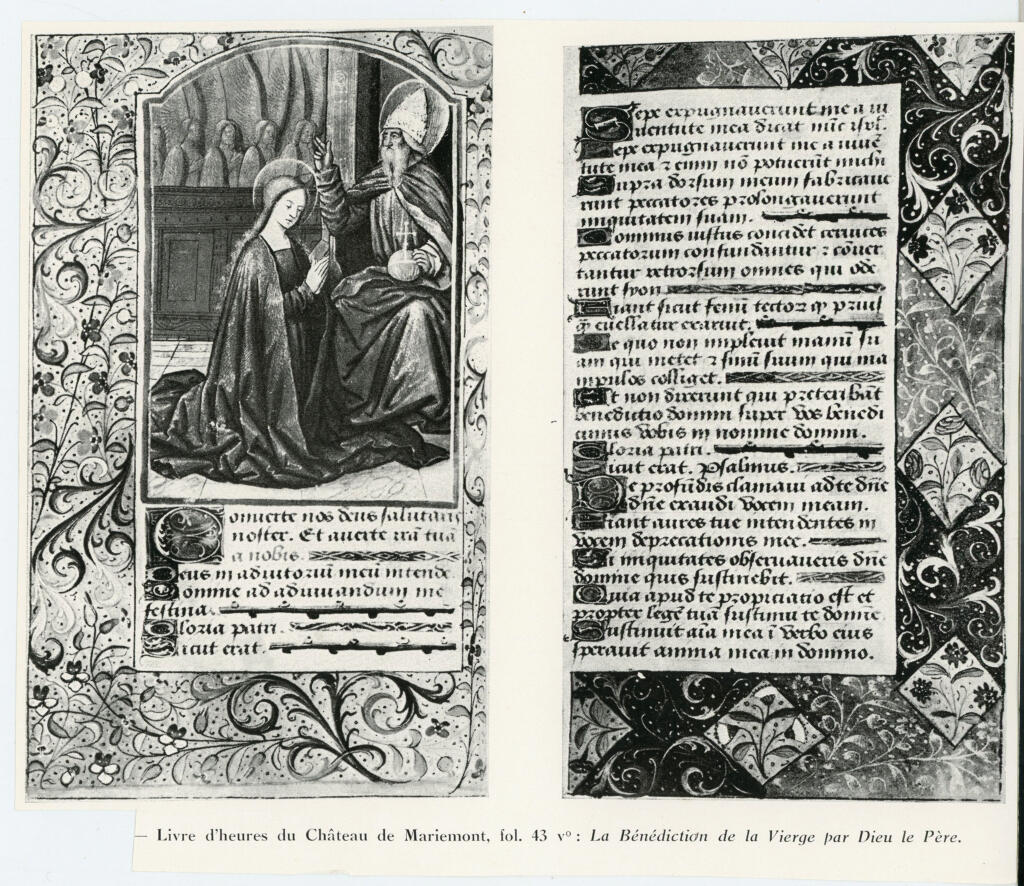 Converte nos deus salutaris
noster. Et averte irã tuã
a nobis.
Deus in adiutoriũ meũ intende
Domine ad adiuvandum me
festina.
Gloria patri.
Sicut erat.
Sepe expugnaverunt me a iu
ventute mea dicat nũc isrl.
Sepe expugnaverunt me a iuvẽ
tute mea ⁊ enim nõ potuerũt michi
Supra dorsum meum fabricave
runt peccatores prolongaverunt
iniquitatem suam.
Dominus iustus concidit cervices
peccatorum confundantur ⁊ cõver
tantur retrorsum omnes qui ode
runt syon.
Fiant sicut fenũ tectorꝝ qꝫ prius
q̃ evellatur exaruit.
De quo non implevit manũ su
am qui metet ⁊ sinũ suum qui ma
nipulos colliget.
Et non dixerunt qui preteribãt
benedictio domini super vos benedi
ximus vobis in nomine domini.
Gloria patri.
Sicut erat. Psalmus.
De profũdis clamavi ad te dñe
dñe exaudi vocem meam.
Fiant aures tue intendentes in
vocem deprecationis mee.
Si iniquitates observaveris dñe
domine quis sustinebit.
Quia apud te propiciatio est et
propter legẽ tuã sustinui te domine.
Sustinuit aĩa mea ĩ verbo eius
speravit anima mea in domino.
— Livre d'heures du Château de Mariemont, fol. 43 vº : La Bénédiction de la Vierge par Dieu le Père.